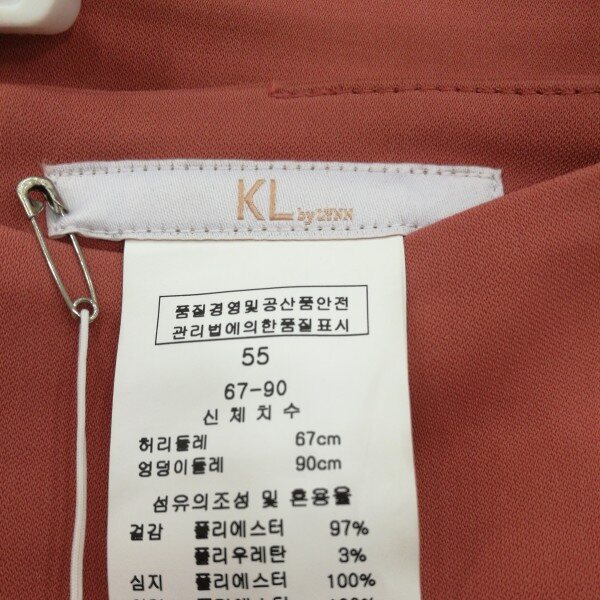 KL by LYNN
품질경영및공산품안전
관리법에의한품질표시
55
67-90
신체치수
허리둘레 67cm
엉덩이둘레 90cm
섬유의조성 및 혼용율
겉감 폴리에스터 97%
폴리우레탄 3%
심지 폴리에스터 100%
100%